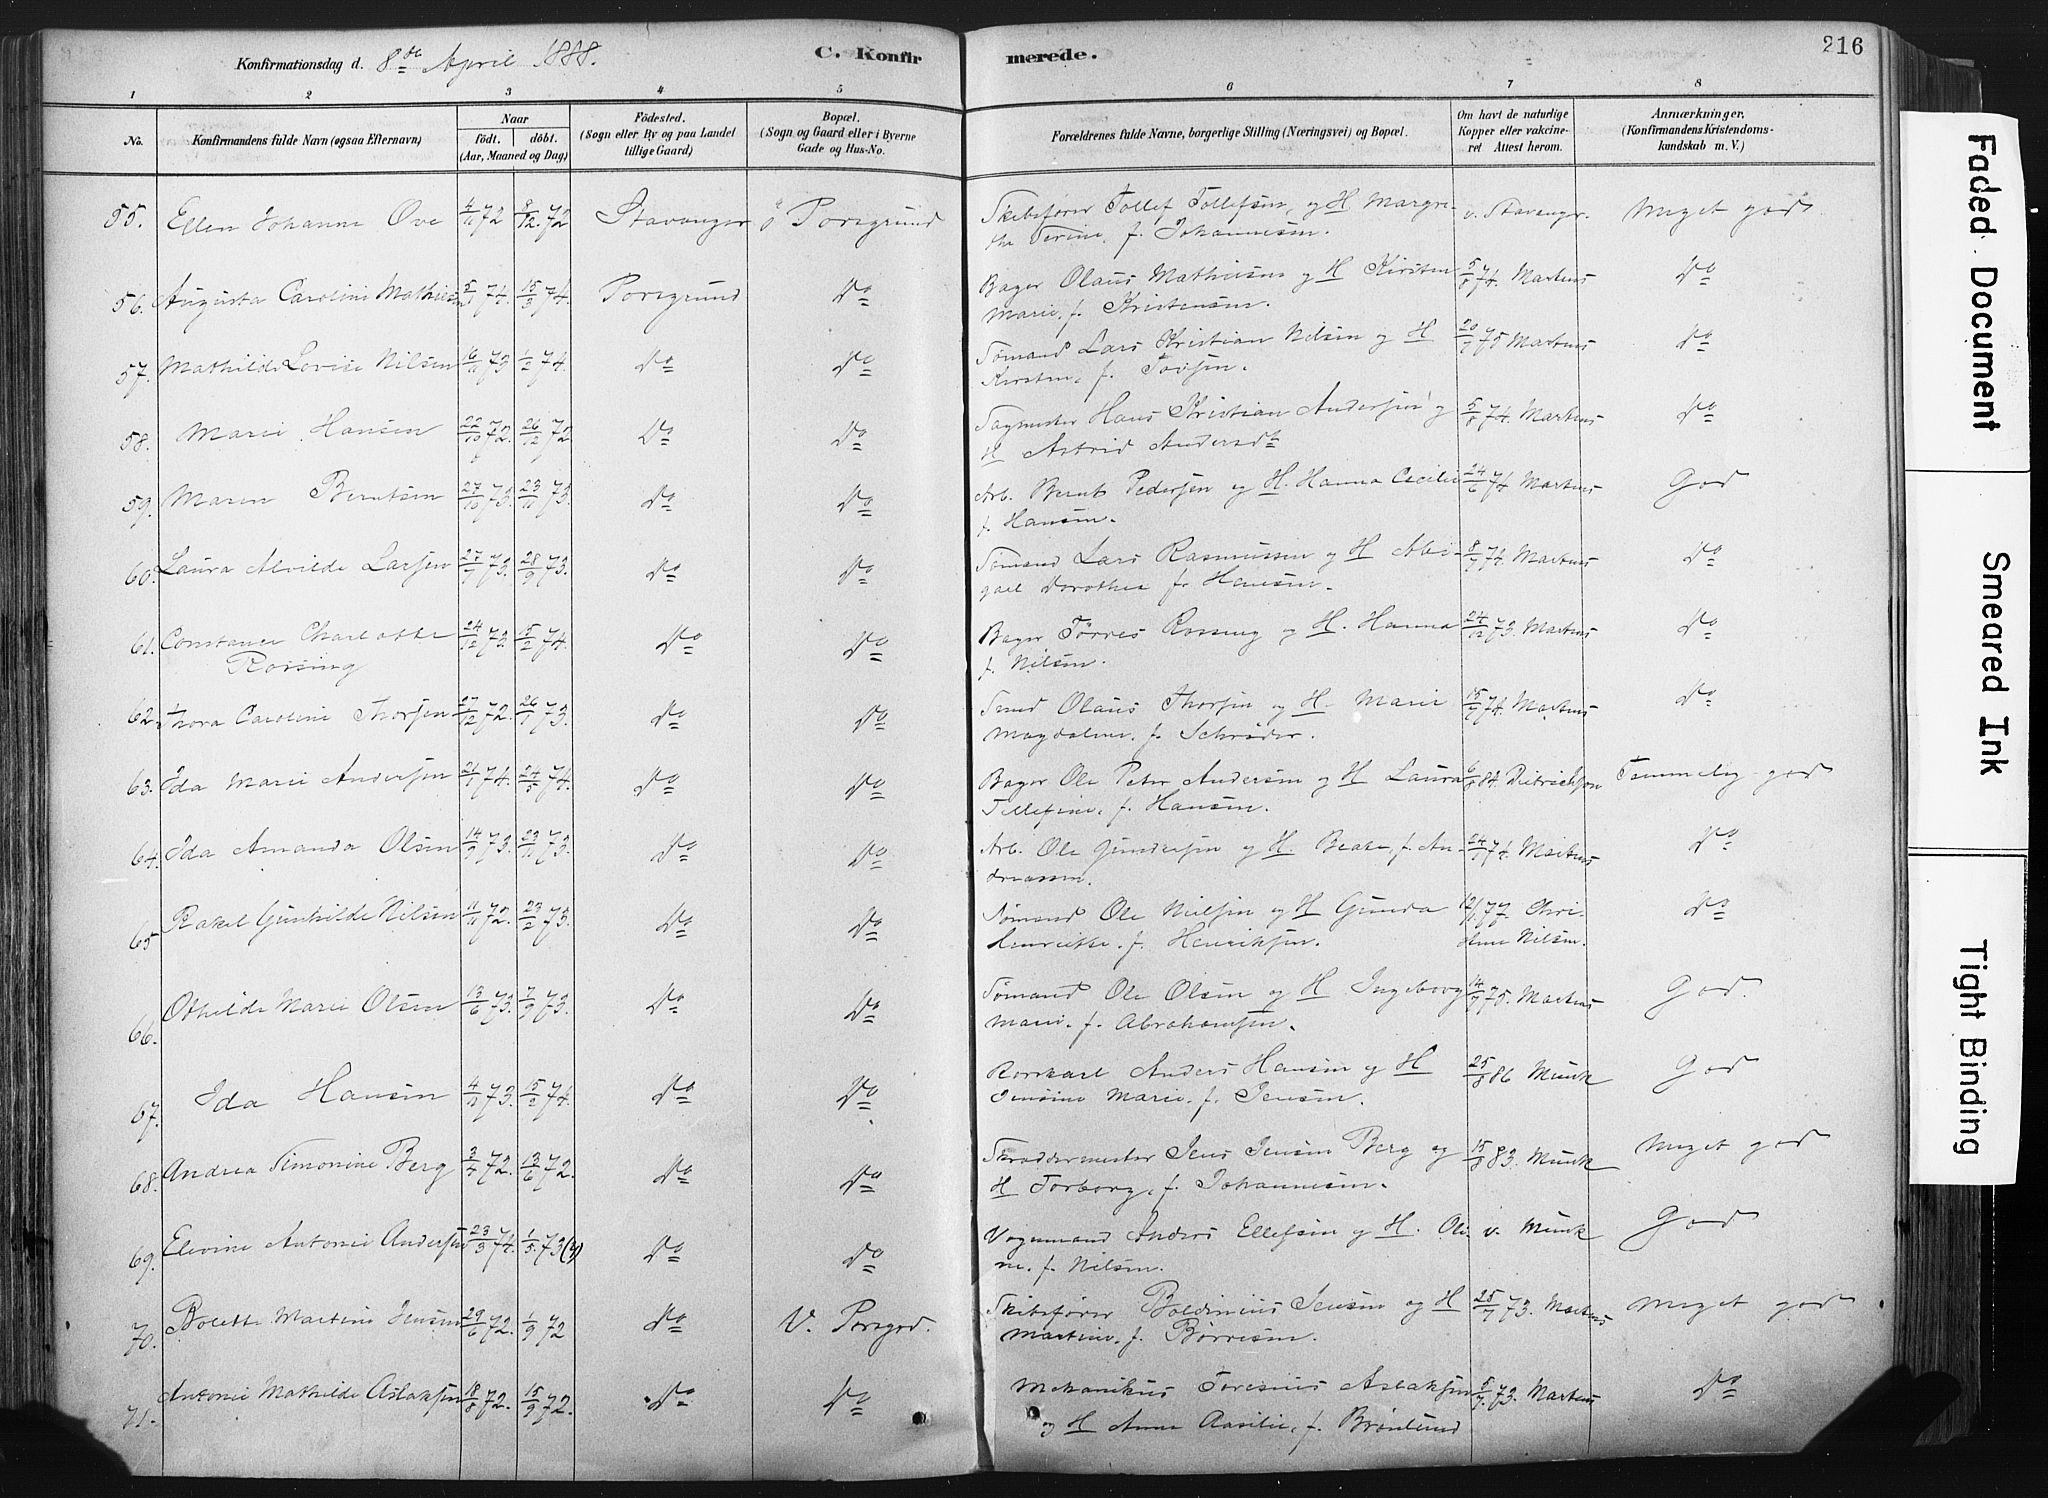 Konfirmationsdag d. 8de April 1888. C. Konfirmerede. 216
1 2 3 4 5 6 7 8
No. Konfirmandens fulde Navn (ogsaa Efternavn) Naar födt. döbt. (Aar, Maaned og Dag) Födested. (Sogn eller By og paa Landet tillige Gaard) Bopæl. (Sogn og Gaard eller i Byerne Gade og Hus-No. Forældrenes fulde Navne, borgerlige Stilling (Næringsvei) og Bopæl. Om havt de naturlige Kopper eller vakcineret Attest herom. Anmærkninger. (Konfirmandens Kristendomskundskab m. V.)
55. Ellen Johanne Ove 4/11 72 8/12 72 Stavanger Ö Porsgrund Skibsfører Tollef Tollefsen, og H Margre-
the Serine, f. Johannesen. v. Stavanger Meget god
56. Augusta Caroline Mathisen 5/1 74. 15/3 74. Porsgrund Do Bager Olaus Mathisen og H Kirsten
Marie, f. Kristensen. 5/8 74. Martens Do
57. Mathilde Lovise Nilsen 16/11 73 1/2 74. Do Do Sømand Lars Kristian Nilsen og H
Kirsten, f. Tovsen. 20/7 75 Martens Do
58. Marie Hansen 22/10 72. 26/12 72 Do Do Sagmester Hans Kristian Andersen og
H Astrid Andersdt 5/8 74. Martens Do
59. Maren Berntsen 27/10 73. 23/11 73. Do Do Arb. Bernt Pedersen og H. Hanna Cecilie
f. Hansen. 24/6 74 Martens God
60. Laura Alvilde Larsen 27/7 73. 28/9 73. Do Do Sømand Lars Rasmussen og H Abi-
gael Dorothea f. Hansen. 8/7 74. Martens Do
61. Constance Charlotte
Rossing 24/12 73 15/2 74. Do Do Bager Tørres Rossing og H. Hanna
f. Nilsen. 24/12 73. Martens Do
62. Thora Caroline Thorsen 27/12 72. 26/1 73. Do Do Smed Olaus Thorsen og H. Marie
Magdalene. f. Schrøder. 15/7 74. Martens Do
63. Ida Marie Andersen 21/1 74. 24/5 74. Do Do Bager Ole Peter Andersen og H Laura
Tellefine, f. Hansen. 6/8 84. Dietrichson Temmelig god
64. Ida Amanda Olsen 14/9 73. 23/11 73. Do Do Arb. Ole Gundersen og H. Beate, f. An-
dreassen. 24/7 74. Martens Do
65 Rakel Gunhilde Nilsen 11/11 72. 23/2 73. Do Do Sømand Ole Nilsen og H Gunda
Henriette. f. Henriksen. 12/1 77. Chri-
stine Nilsen. Do
66. Othilde Marie Olsen 13/6 73. 7/9 73. Do Do Sømand Ole Olsen og H Ingeborg
Marie. f. Abrahamsen. 14/7 75. Martens God.
67. Ida Hansen 4/11 73. 15/2 74. Do Do Rorskarl Anders Hansen og H
Jensine Marie. f. Jensen. 25/8 86 Munk God
68. Andrea Simonine Berg 3/4 72. 13/6 72. Do Do Skræddermester Jens Jensen Berg og
H Torborg, f. Johannesen. 15/8 83. Munk Meget god
69. Elevine Antonie Andersen 23/3 74. 1/5 73(4) Do Do Vognmand Anders Ellefsen og H. Oli
ne. f. Nilsen. v. Munk God
70. Bolette Martine Jensen 29/6 72. 1/9 72 Do V. Porsgrd. Skibsfører Boldinius Jensen og H
Martine, f. Børresen. 25/7 73. Martens Meget god
71. Antonie Mathilde Aslaksen 18/8 72. 15/9 72. Do Do Mekanikus Toresius Aslaksen
og H Anna Aasilie, f. Brønlund 5/7 73. Martens Do
Faded Document
Smeared Ink
Tight Binding